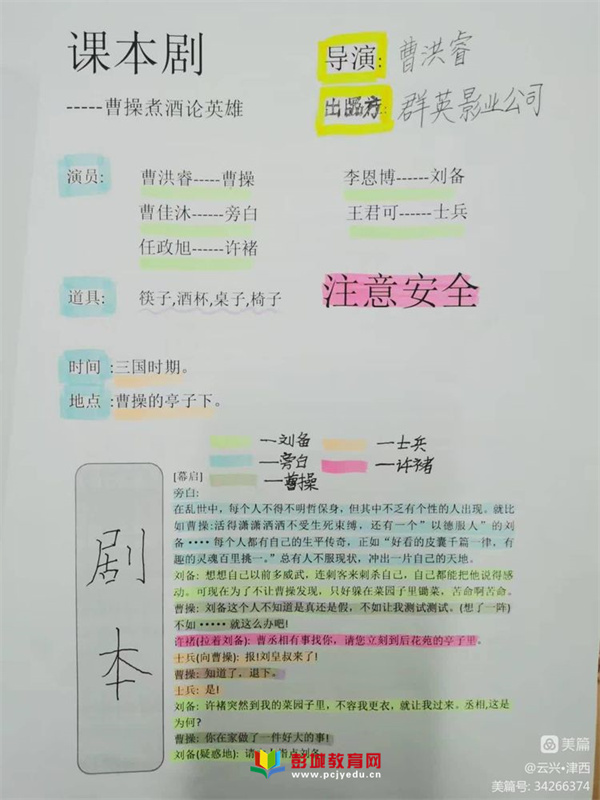 课本剧
导演: 曹洪睿
-----曹操煮酒论英雄
出品方: 群英影业公司
演员: 曹洪睿-----曹操 李恩博------刘备
曹佳沐------旁白 王君可------士兵
任政旭------许褚
道具: 筷子,酒杯,桌子,椅子 注意安全
时间:三国时期。
地点:曹操的亭子下。
—刘备 —士兵
—旁白 —许褚
—曹操
剧本
[幕启]
旁白:
在乱世中，每个人不得不明哲保身，但其中不乏有个性的人出现。就比
如曹操:活得潇潇洒洒不受生死束缚，还有一个"以德服人"的刘
备····每个人都有自己的生平传奇，正如"好看的皮囊千篇一律，有
趣的灵魂百里挑一。"总有人不服现状，冲出一片自己的天地。
刘备: 想想自己以前多威武，连刺客来刺杀自己，自己都能把他说得感
动。可现在为了不让曹操发现，只好躲在菜园子里锄菜，苦命啊苦命。
曹操: 刘备这个人不知道是真还是假，不如让我测试测试。(想了一阵)
不如·····就这么办吧!
许褚(拉着刘备): 曹丞相有事找你，请您立刻到后花苑的亭子里。
士兵(向曹操): 报!刘皇叔来了!
曹操: 知道了，退下。
士兵: 是!
刘备: 许褚突然到我的菜园子里，不容我更衣，就让我过来。丞相,这是
为何?
曹操: 你在家做了一件好大的事!
刘备(疑惑地): 请
彭城教育网
www.pcjyedu.cn
美篇
@云兴•津西
美篇号: 34266374